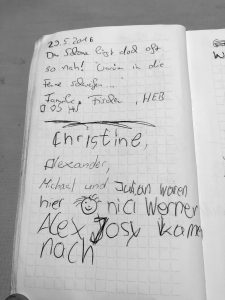 29.5.2016
Das Schöne liegt doch oft
so nah! Warum in die
Ferne schweifen...
Familie Fischer, HEB
Christine,
Alexander,
Michael und Julian waren
hier nici Werner
Alex Josy kam
nach